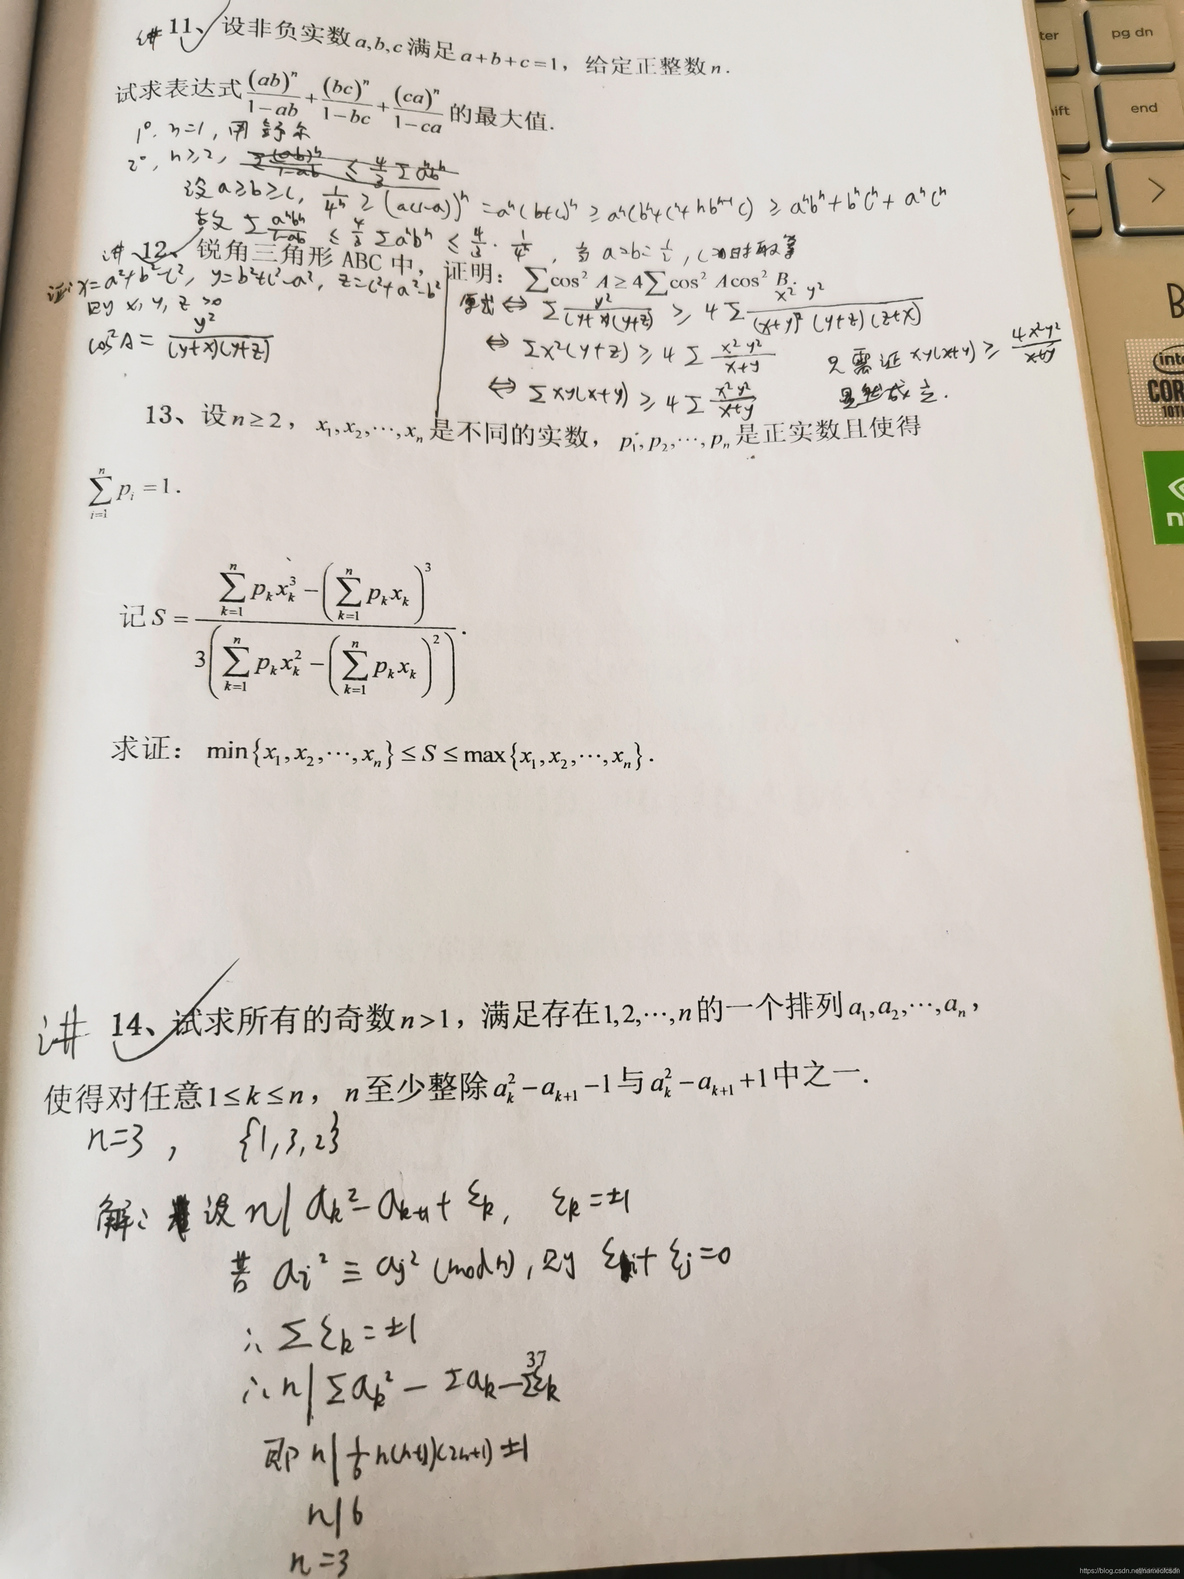 讲 11、设非负实数a,b,c满足a+b+c=1，给定正整数n.
试求表达式 (ab)^n/(1-ab) + (bc)^n/(1-bc) + (ca)^n/(1-ca) 的最大值.
1°. n=1, 用
2°, n≥2, ≤ 4/3 Σa^n b^n
设 a≥b≥c, 1/4^n ≥ (a(1-a))^n = a^n(b+c)^n ≥ a^n(b^n+c^n+nb^{n-1}c) ≥ a^n b^n + b^n c^n + a^n c^n
故 Σ a^n b^n/(1-ab) ≤ 4/3 Σa^n b^n ≤ 4/3 · 1/4^n, 当 a=b=1/2, c=0时取等
讲 12、锐角三角形ABC中，证明：∑cos² A ≥ 4∑cos² A cos² B.
证: x=a²+b²-c², y=b²+c²-a², z=c²+a²-b²
则 x, y, z >0
cos²A = y²/((y+x)(y+z))
原式 ⇔ Σ y²/((y+x)(y+z)) ≥ 4 Σ x²y²/((x+y)²(y+z)(z+x))
⇔ Σx²(y+z) ≥ 4 Σ x²y²/(x+y) 只需证 xy(x+y) ≥ 4x²y²/(x+y)
⇔ Σxy(x+y) ≥ 4 Σ x²y²/(x+y) 显然成立.
13、设n≥2，x₁,x₂,⋯,xₙ是不同的实数，p₁,p₂,⋯,pₙ是正实数且使得
∑_{i=1}^{n} p_i =1.
记S = (∑_{k=1}^{n} p_k x_k^3 − (∑_{k=1}^{n} p_k x_k)^3) / (3(∑_{k=1}^{n} p_k x_k^2 − (∑_{k=1}^{n} p_k x_k)^2)).
求证： min{x₁,x₂,⋯,xₙ} ≤ S ≤ max{x₁,x₂,⋯,xₙ}.
讲 14、试求所有的奇数n>1，满足存在1,2,⋯,n的一个排列a₁,a₂,⋯,aₙ，
使得对任意1≤k≤n，n至少整除a_k²−a_{k+1}−1与a_k²−a_{k+1}+1中之一.
n=3, {1,3,2}
解: 设 n| a_k² − a_{k+1} + ε_k, ε_k=±1
若 a_i² ≡ a_j² (mod n), 则 ε_i + ε_j =0
∴ Σε_k = ±1
∴ n| Σa_k² − Σa_k − Σε_k
37
即 n| 1/6 n(n+1)(2n+1) ±1
n|6
n=3
ter
pg dn
ift
end
>
B
inte
CORE
10TH
https://blog.csdn.net/